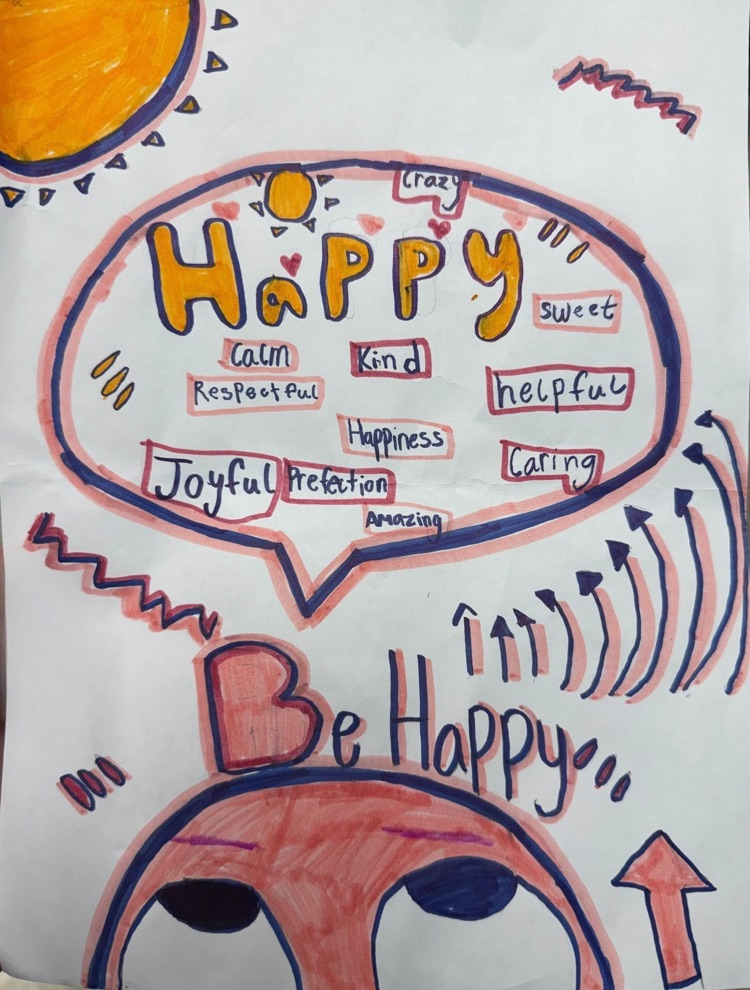 Crazy
Happy
sweet
Calm
Kind
Respectful
helpful
Happiness
Caring
Joyful
Prefection
Amazing
Be Happy